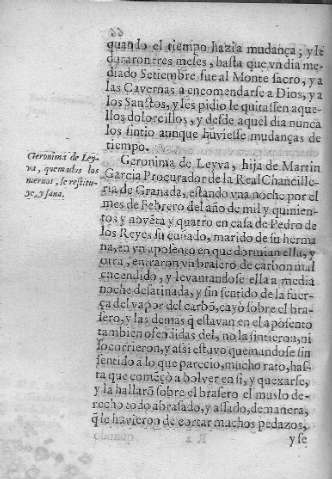 66
quando el tiempo hazia mudança; y le
duraron tres meses, hasta que vn dia me-
diado Setiembre fue al Monte sacro, y a
las Cavernas a encomendarse a Dios, y a
los Sanctos, y les pidio le quitassen aque-
llos dolorcillos, y desde aquel dia nunca
los sintio aunque huviesse mudanças de
tiempo.
Geronima de Ley-
va, quemados los
nervos, se restitu-
ye, y sana.
Geronima de Leyva, hija de Martin
Garcia Procurador de la Real Chancille-
ria de Granada, estando vna noche por el
mes de Febrero del año de mil y quinien-
tos y novẽta y quatro en casa de Pedro de
los Reyes su cuñado, marido de su herma
na, en vn aposento en que dormian ella, y
otra, entraron vn brasero de carbon mal
encendido, y levantandose ella a media
noche desatinada, y sin sentido de la fuer-
ça del vapor del carbõ, cayò sobre el bra-
sero, y las demas q estavan en el aposento
tambien ofendidas del, no la sintieron, ni
socorrieron, y assi estuvo quemandose sin
sentido a lo que parecio, mucho rato, has-
ta que começò a bolver en si, y quexarse,
y la hallarõ sobre el brasero el muslo de-
recho todo abrasado, y assado, de manera,
q̃ le havieron de cortar muchos pedaços,
y se